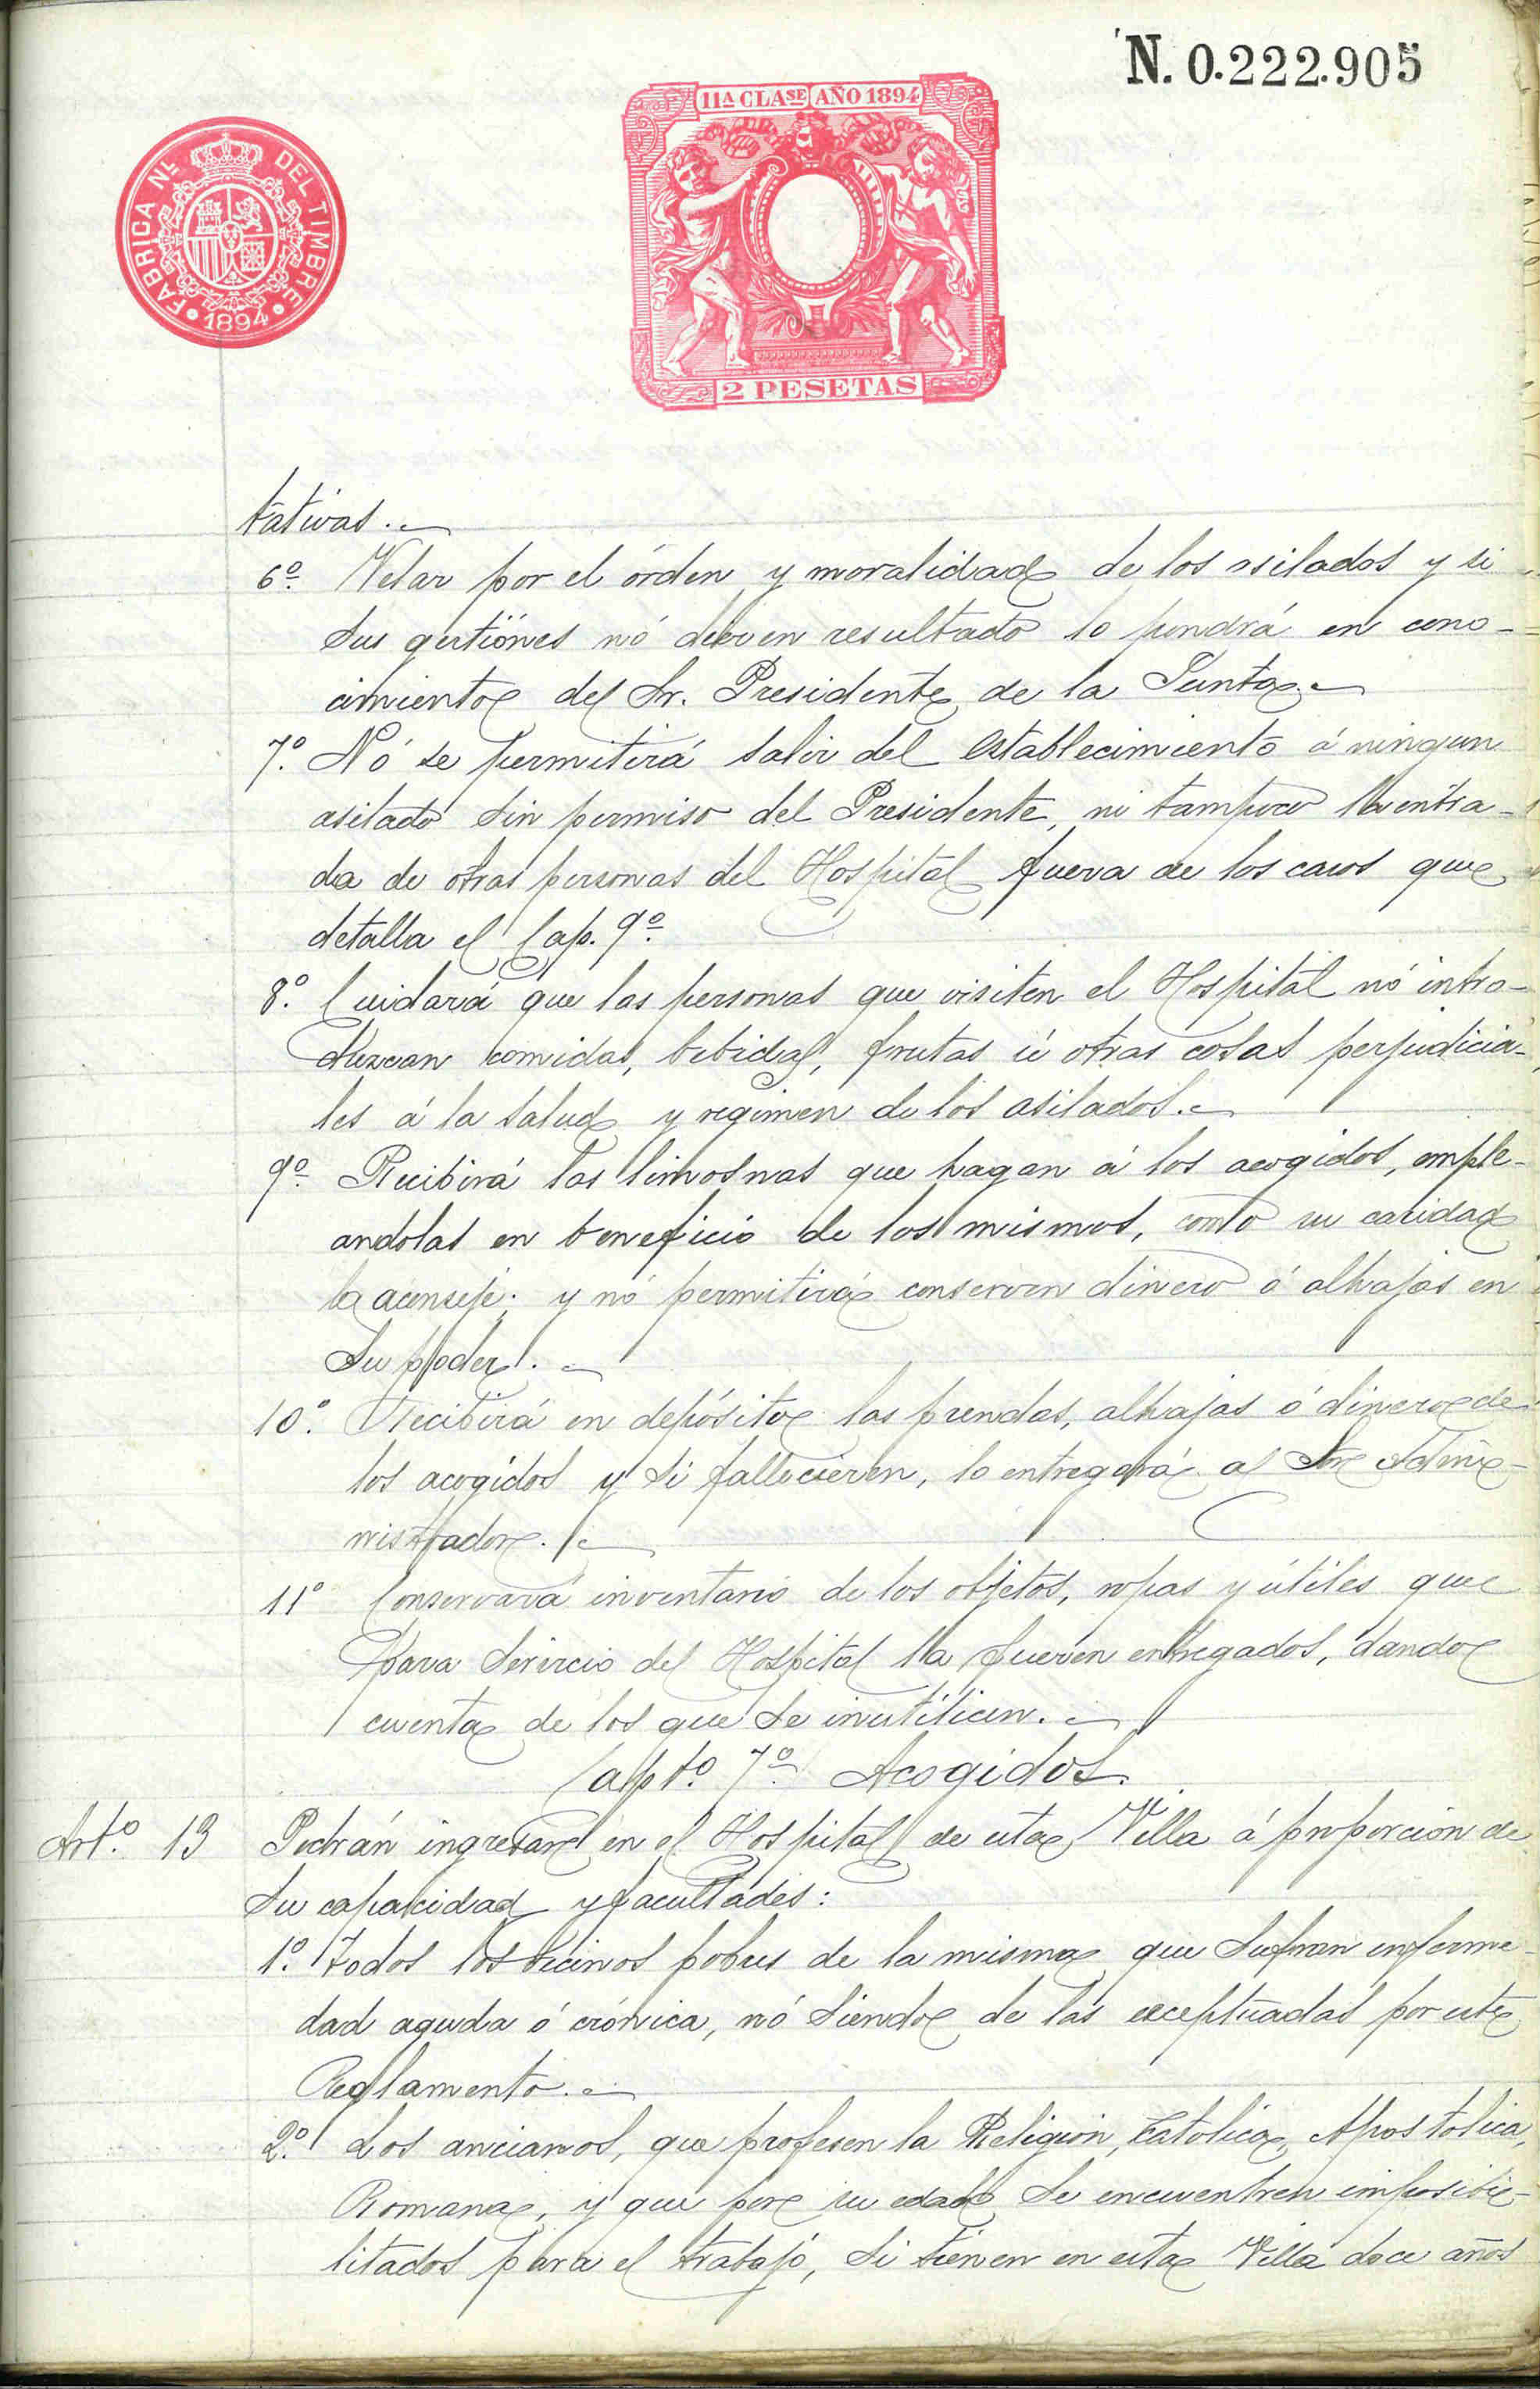 N. 0.222.905
11A CLASE AÑO 1894
FABRICA NL DEL TIMBRE
1894
2 PESETAS
tativas.
6º Velar por el órden y moralidad de los asilados y si
sus gestiónes nó dieren resultado lo pondrá en cono-
cimiento del Sr. Presidente de la Junta.
7º. Nó se permitirá salir del Establecimiento á ningun
asilado sin permiso del Presidente, ni tampoco la entra-
da de otras personas del Hospital fuera de los casos que
detalla el Cap. 9º.
8º. Cuidará que las personas que visiten el Hospital nó intro-
duzcan comidas, bebidas, frutas ú otras cosas perjudicia-
les á la salud y regimen de los asilados.
9º Recibirá las limosnas que hagan á los acogidos, emple-
andolas en beneficio de los mismos, como su caridad
la aconseje; y nó permitirá conserven dinero ó alhajas en
su poder.
10º. Recibirá en depósito las prendas, alhajas ó dinero de
los acogidos y si fallecieren, lo entregará al Sor Admi-
nistrador.
11º Conservará inventario de los objetos, ropas y útiles que
para servicio del Hospital la fueren entregados, dando
cuenta de los que se inutilicen.
Capto. 7º Acogidos.
Arto. 13 Podrán ingresar en el Hospital de esta Villa á proporcion de
su capacidad y facultades:
1º. Todos los vecinos pobres de la misma que sufran enferme-
dad aguda ó crónica, nó siendo de las exceptuadas por este
Reglamento.
2º. Los ancianos, que profesen la Religion, Catolica, Apostolica,
Romana, y que por su edad se encuentren imposibi-
litados para el trabajo, si tienen en esta Villa doce años